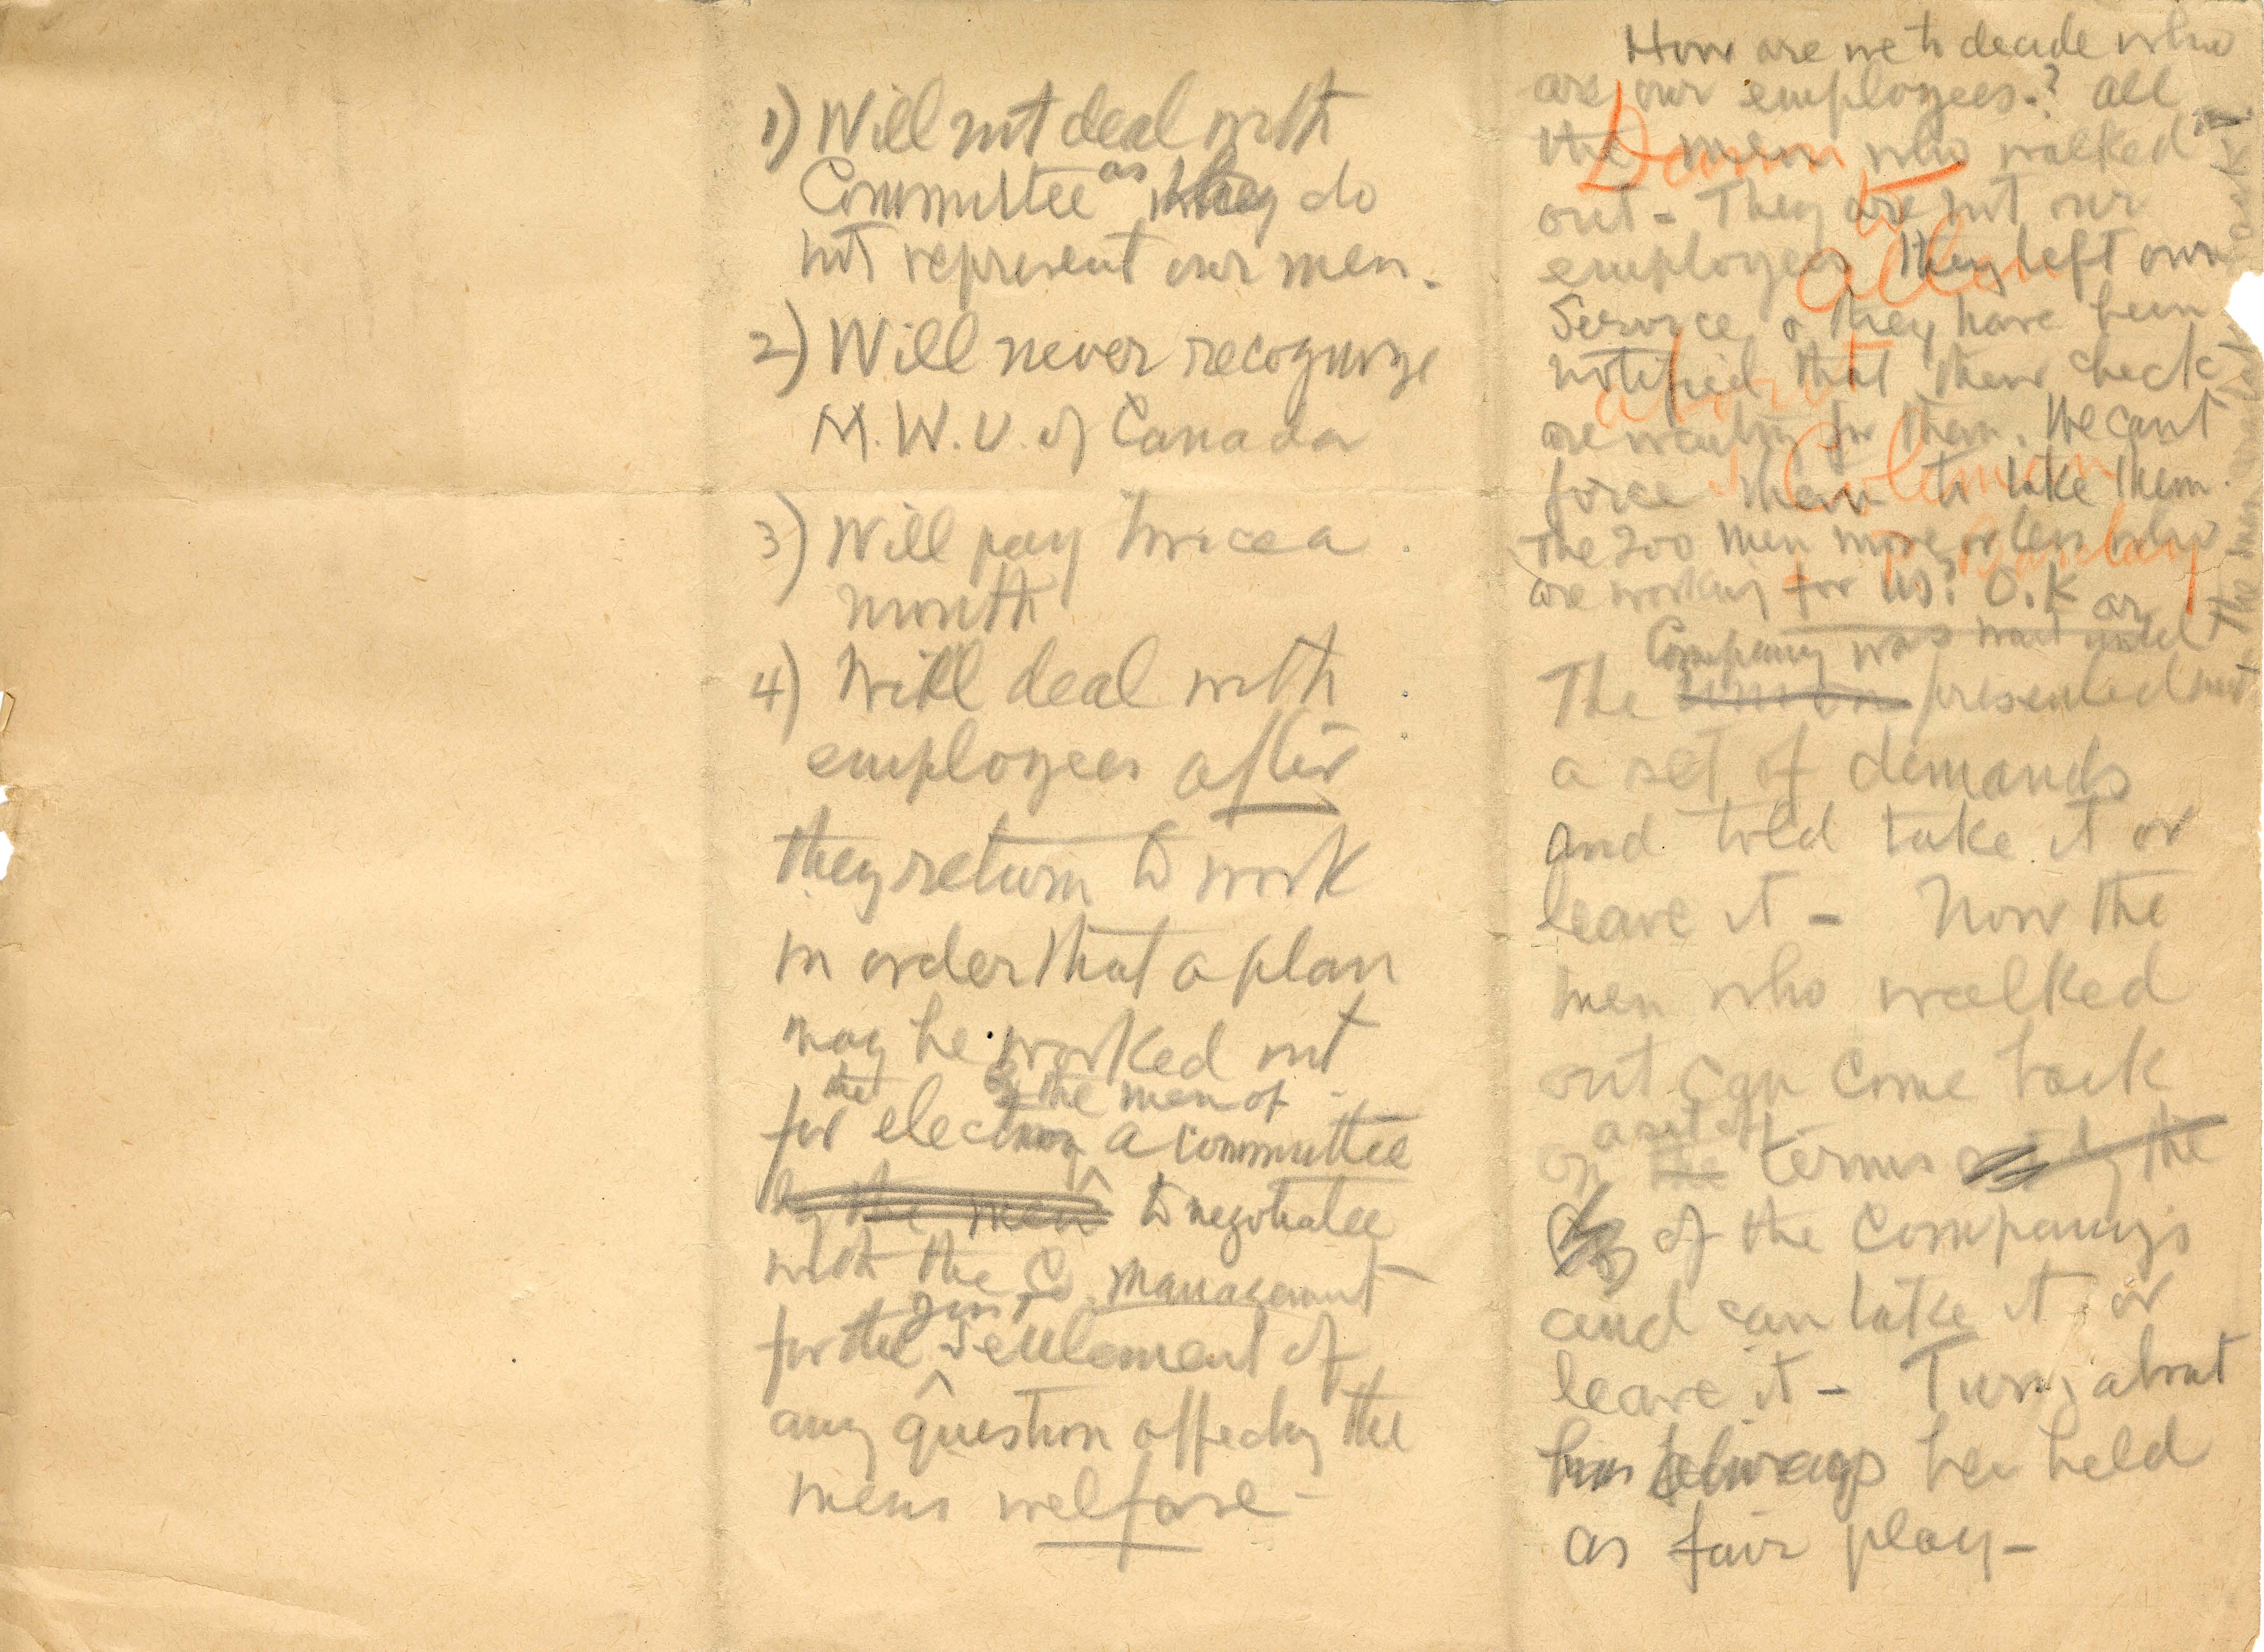 1) Will not deal with
Committee as they do
not represent our men.
2) Will never recognize
M.W.U. of Canada
3) Will pay twice a
month
4) Will deal with
employees after
they return to work
in order that a plan
may be worked out
for the election by the men of a committee
by the men to negotiate
with the Co. management
for the just settlement of
any question affectng the
mens welfare -
How are we to decide who
are our employees.? All
the men who walked
out - They are not our
employees they left our
Service & they have been
notified that their check
are waiting for them. We cant
force them to take them.
The 200 men more or less who
are working for us? O.K or
The union Company was presented
a set of demands
and told take it or
leave it - Now the
men who walked
out can come back
on the a set of terms by the
of the Companys
and can take it or
leave it - Turn about
has always be held
as fair play -
Down
to
all
about
Coleman